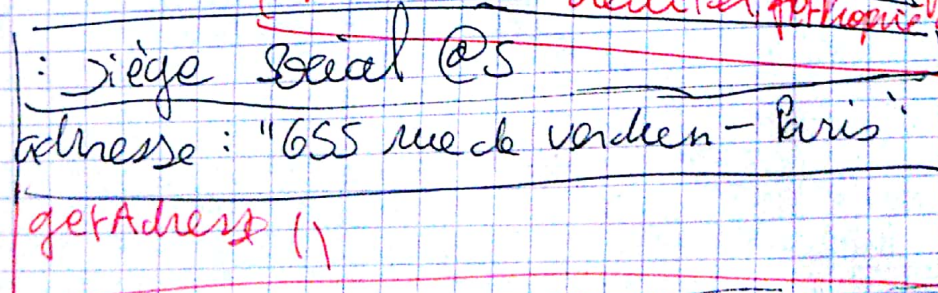 : Siège Social @5
adresse : "655 rue de verdun - Paris"
getAdresse ()